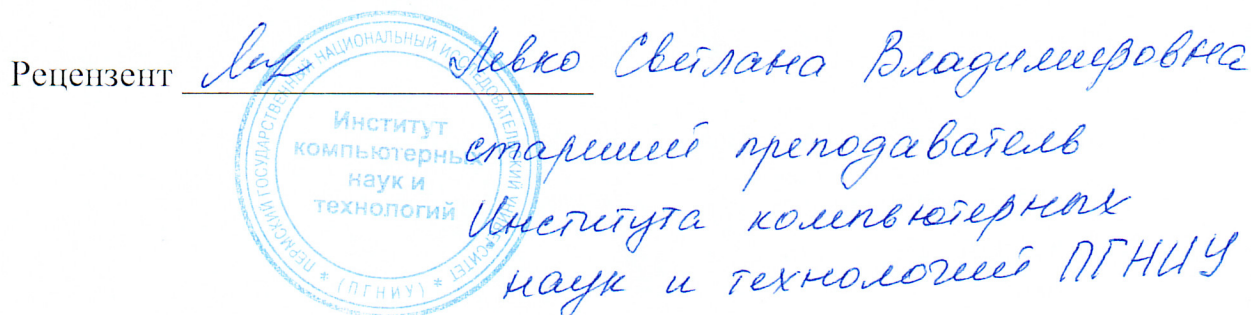 Рецензент Левко Светлана Владимировна
старший преподаватель
Института компьютерных
наук и технологий ПГНИУ
ПЕРМСКИЙ ГОСУДАРСТВЕННЫЙ НАЦИОНАЛЬНЫЙ ИССЛЕДОВАТЕЛЬСКИЙ УНИВЕРСИТЕТ * (ПГНИУ) *
Институт
компьютерных
наук и
технологий